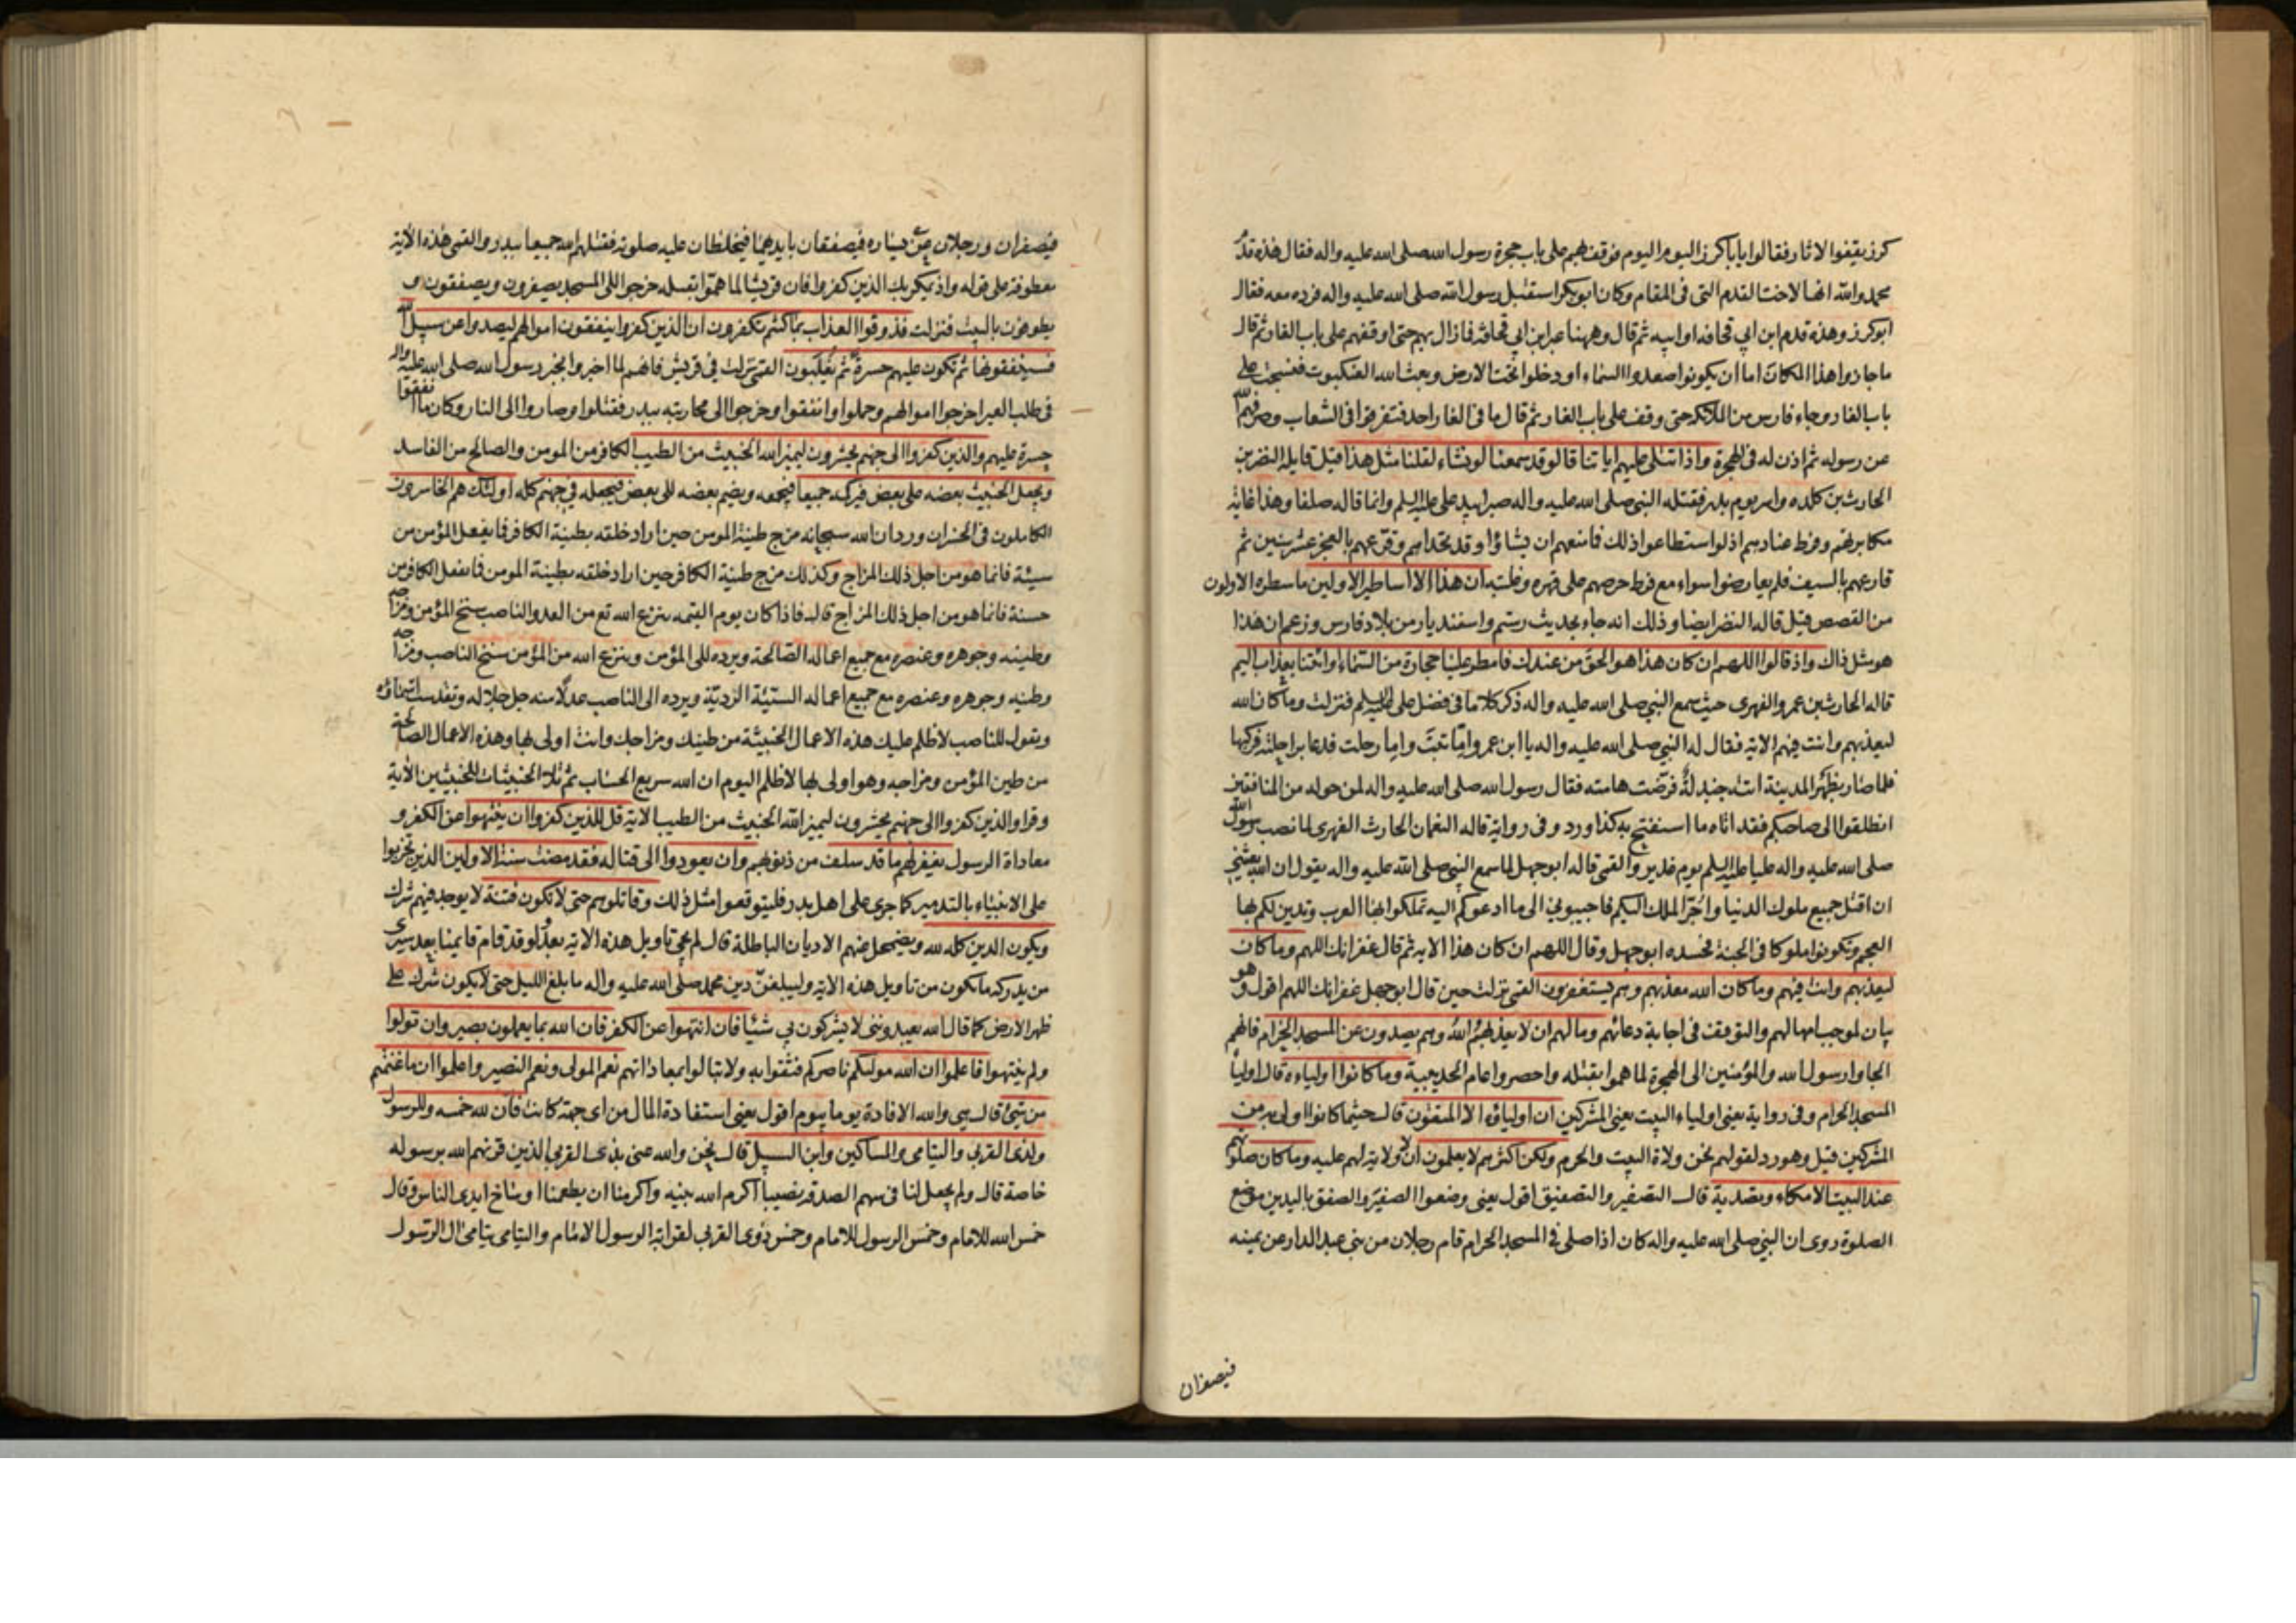 كرز يقفوا الاثار فقالوا يابا كرز اليوم اليوم فوقف بهم على باب حجرة رسول الله صلى الله عليه واله فقال هذه قدم
محمد والله انها لاخت القدم التى فى المقام وكان ابو بكر استقبل رسول الله صلى الله عليه واله فرده معه فقال
ابو كرز وهذه قدم ابن ابي قحافه او ابيه ثم قال وههنا عبر ابن ابي قحافة فما زال بهم حتى اوقفهم على باب الغار ثم قال
ما جازوا هذا المكان اما ان يكونوا صعدوا السماء او دخلوا تحت الارض وبعث الله العنكبوت فنسجت على
باب الغار وجاء فارس من الملائكه حتى وقف على باب الغار ثم قال ما فى الغار احد فتفرقوا فى الشعاب وصرفهم الله
عن رسوله ثم اذن له فى الهجرة واذا تتلى عليهم اياتنا قالوا قد سمعنا لو نشاء لقلنا مثل هذا قيل قايله النضر بن
الحارث بن كلده واسر يوم بدر فقتله النبي صلى الله عليه واله صبرا بيد على عليه السلم وانما قاله صلفا وهذا غاية
مكابرتهم وفرط عنادهم اذ لو استطاعوا ذلك فما منعهم ان يشاؤا وقد تحداهم وقرعهم بالعجز عشر سنين ثم
قارعهم بالسيف فلم يعارضوا سواه مع فرط حرصهم على قهره وغلبته ان هذا الا اساطير الاولين ما سطره الاولون
من القصص قيل قاله النضر ايضا وذلك انه جاء بحديث رستم واسفنديار من بلاد فارس وزعم ان هذا
هو مثل ذاك واذ قالوا اللهم ان كان هذا هو الحق من عندك فامطر علينا حجارة من السماء او ائتنا بعذاب اليم
قاله الحارث بن عمرو الفهرى حيث سمع النبي صلى الله عليه واله ذكر كلاما فى فضل على عليه السلم فنزلت وما كان الله
ليعذبهم وانت فيهم الاية فقال له النبي صلى الله عليه واله يا ابن عمرو اما تبت واما رحلت فدعا براحلته فركبها
فلما صار بظهر المدينة اتته جندلة فرضت هامته فقال رسول الله صلى الله عليه واله لمن حوله من المنافقين
انطلقوا الى صاحبكم فقد اتاه ما استفتح به كذا ورد وفى رواية قاله النعمان الحارث الفهرى لما نصب رسول الله
صلى الله عليه واله عليا عليه السلم يوم غدير والقمى قاله ابو جهل لما سمع النبي صلى الله عليه واله يقول ان الله بعثني
ان اقتل جميع ملوك الدنيا واجر الملك اليكم فاجيبوني الى ما ادعوكم اليه تملكوا بها العرب وتدين لكم بها
العجم وتكونوا ملوكا فى الجنة فحسده ابو جهل وقال اللهم ان كان هذا الايه ثم قال غفرانك اللهم وما كان
ليعذبهم وانت فيهم وما كان الله معذبهم وهم يستغفرون القمى نزلت حين قال ابو جهل غفرانك اللهم اقول وهو
بيان لموجب امهالهم والتوقف فى اجابة دعائهم وما لهم ان لا يعذبهم الله وهم يصدون عن المسجد الحرام فانهم
الجاوا رسول الله والمؤمنين الى الهجرة لما هموا بقتله واحصروا عام الحديبية وما كانوا اولياءه قال اولياء
المسجد الحرام وفى رواية يعنى اولياء البيت يعنى المشركين ان اولياؤه الا المتقون قال حيثما كانوا اولى به من
المشركين قيل وهو رد لقولهم نحن ولاة البيت والحرم ولكن اكثرهم لا يعلمون ان لا ولاية لهم عليه وما كان صلوتهم
عند البيت الا مكاء وتصدية قال التصفير والتصفيق اقول يعنى وضعوا الصفير والصفق باليدين موضع
الصلوة روى ان النبي صلى الله عليه واله كان اذا صلى فى المسجد الحرام قام رجلان من بنى عبد الدار عن يمينه
فيصفران
فيصفران ورجلان عن يساره فيصفقان بايديهما فيخلطان عليه صلوته فقتلهم الله جميعا ببدر والقمى هذه الاية
معطوفة على قوله واذ يمكر بك الذين كفروا فان قريشا لما هموا بقتله خرجوا الى المسجد يصفرون ويصفقون و
يطوفون بالبيت فنزلت فذوقوا العذاب بما كنتم تكفرون ان الذين كفروا ينفقون اموالهم ليصدوا عن سبيل الله
فسينفقونها ثم تكون عليهم حسرة ثم يغلبون القمى نزلت فى قريش فانهم لما اخبروا بخبر رسول الله صلى الله عليه واله
فى طلب العير اخرجوا اموالهم وحملوا وانفقوا وخرجوا الى محاربته ببدر فقتلوا وصاروا الى النار وكان ما انفقوا
حسرة عليهم والذين كفروا الى جهنم يحشرون ليميز الله الخبيث من الطيب الكافر من المومن والصالح من الفاسد
ويجعل الخبيث بعضه على بعض فيركمه جميعا فيجمعه ويضم بعضه الى بعض فيجعله في جهنم كله اولئك هم الخاسرون
الكاملون فى الخسران ورد ان الله سبحانه مزج طينة المومن حين اراد خلقه بطينة الكافر فما يفعل المؤمن من
سيئة فانما هو من اجل ذلك المزاج وكذلك مزج طينة الكافر حين اراد خلقه بطينة المومن فما يفعل الكافر من
حسنة فانما هو من اجل ذلك المزاج قال فاذا كان يوم القيمه ينزع الله تع من العدو الناصب سنخ المؤمن ومزاجه
وطينه وجوهره وعنصره مع جميع اعماله الصالحة ويرده الى المؤمن وينزع الله من المؤمن سنخ الناصب ومزاجه
وطينه وجوهره وعنصره مع جميع اعماله السيئة الردية ويرده الى الناصب عدلا منه جل جلاله وتقدست اسماؤه
ويقول للناصب لا ظلم عليك هذه الاعمال الخبيثة من طينك ومزاجك وانت اولى بها وهذه الاعمال الصالحة
من طين المؤمن ومزاجه وهو اولى بها لا ظلم اليوم ان الله سريع الحساب ثم تلا الخبيثات للخبيثين الاية
وقرا والذين كفروا الى جهنم يحشرون ليميز الله الخبيث من الطيب الاية قل للذين كفروا ان ينتهوا عن الكفر و
معاداة الرسول يغفر لهم ما قد سلف من ذنوبهم وان يعودوا الى قتاله فقد مضت سنة الاولين الذين تحزبوا
على الانبياء بالتدمير كما جرى على اهل بدر فليتوقعوا مثل ذلك وقاتلوهم حتى لا تكون فتنة لا يوجد فيهم شرك
ويكون الدين كله لله ويضمحل عنهم الاديان الباطلة قال لم يجئ تاويل هذه الاية بعد ولو قد قام قايمنا بعد سيرى
من يدركه ما يكون من تاويل هذه الاية وليبلغن دين محمد صلى الله عليه واله ما بلغ الليل حتى لا يكون شرك على
ظهر الارض كما قال الله يعبدوننى لا يشركون بي شيئا فان انتهوا عن الكفر فان الله بما يعملون بصير وان تولوا
ولم ينتهوا فاعلموا ان الله موليكم ناصركم فثقوا به ولا تبالوا بمعاداتهم نعم المولى ونعم النصير واعلموا ان ما غنمتم
من شئ قال هى والله الافادة يوما بيوم اقول يعنى استفادة المال من اى جهة كانت فان لله خمسه وللرسول
ولذى القربى واليتامى والمساكين وابن السبيل قال نحن والله عنى بذى القربى الذين قرنهم الله برسوله
خاصة قال ولم يجعل لنا فى سهم الصدقه نصيبا اكرم الله نبيه واكرمنا ان يطعمنا اوساخ ايدى الناس وقال
خمس الله للامام وخمس الرسول للامام وخمس ذوى القربى لقرابة الرسول الامام واليتامى يتامى ال الرسول